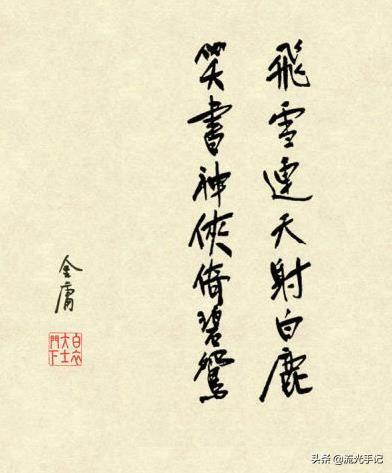 飛雪連天射白鹿
笑書神俠倚碧鴛
金庸
白衣
大士
門下
头条 @流光手记